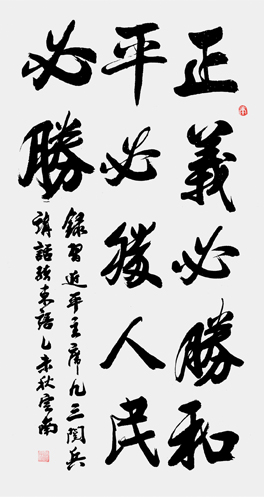 正義必勝和
平必勝人民
必勝
錄習近平主席九三閱兵
講話結束語乙未秋雲南